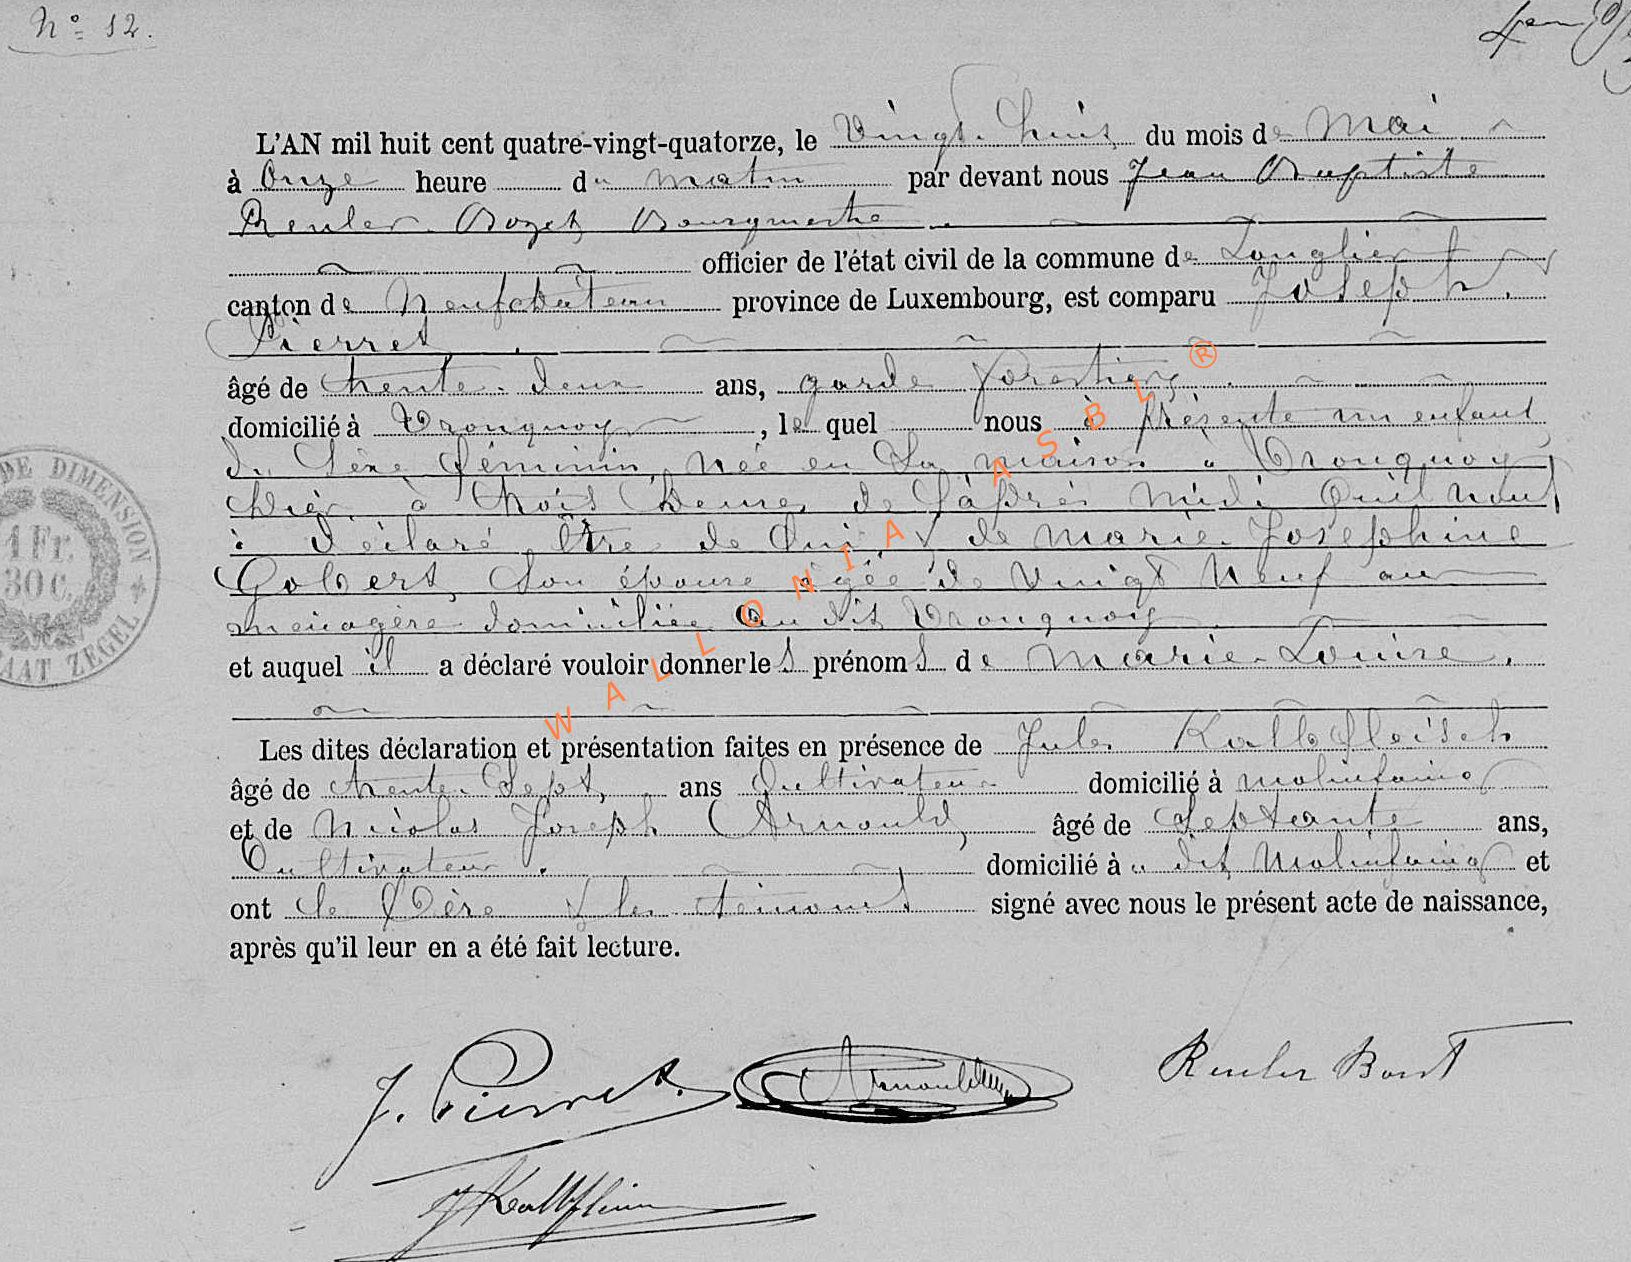 N° 12.
L'AN mil huit cent quatre-vingt-quatorze, le Vingt-huit du mois de Mai
à Onze heure du matin par devant nous Jean Baptiste
Reuler Bozet Bourgmestre
officier de l'état civil de la commune de Longlier
canton de Neufchâteau province de Luxembourg, est comparu Joseph
Pierret
âgé de trente-deux ans, garde forestier
domicilié à Tronquoy, lequel nous à présenté un enfant
du Sexe féminin, née en Sa maison a Tronquoy
hier à trois heures de l'après midi qu'il nous
à déclaré être de lui & de Marie Josephine
Gobert, Son épouse agée de Vingt Neuf ans
menagère domiciliée au dit Tronquoy
et auquel il a déclaré vouloir donner les prénoms de Marie-Louise.
Les dites déclaration et présentation faites en présence de Jules Kalbfleisch
âgé de trente Sept, ans Cultivateur domicilié à Molinfaing
et de Nicolas Joseph Arnould, âgé de Septante ans,
Cultivateur. domicilié à u dit Molinfaing et
ont le Père & les témoins signé avec nous le présent acte de naissance,
après qu'il leur en a été fait lecture.
J. Pierret.
Arnould
Reuler Bozet
J Kalbfleisch
DE DIMENSION
1 Fr.
30 C.
ZEGEL
WALLONIA ASBL ®